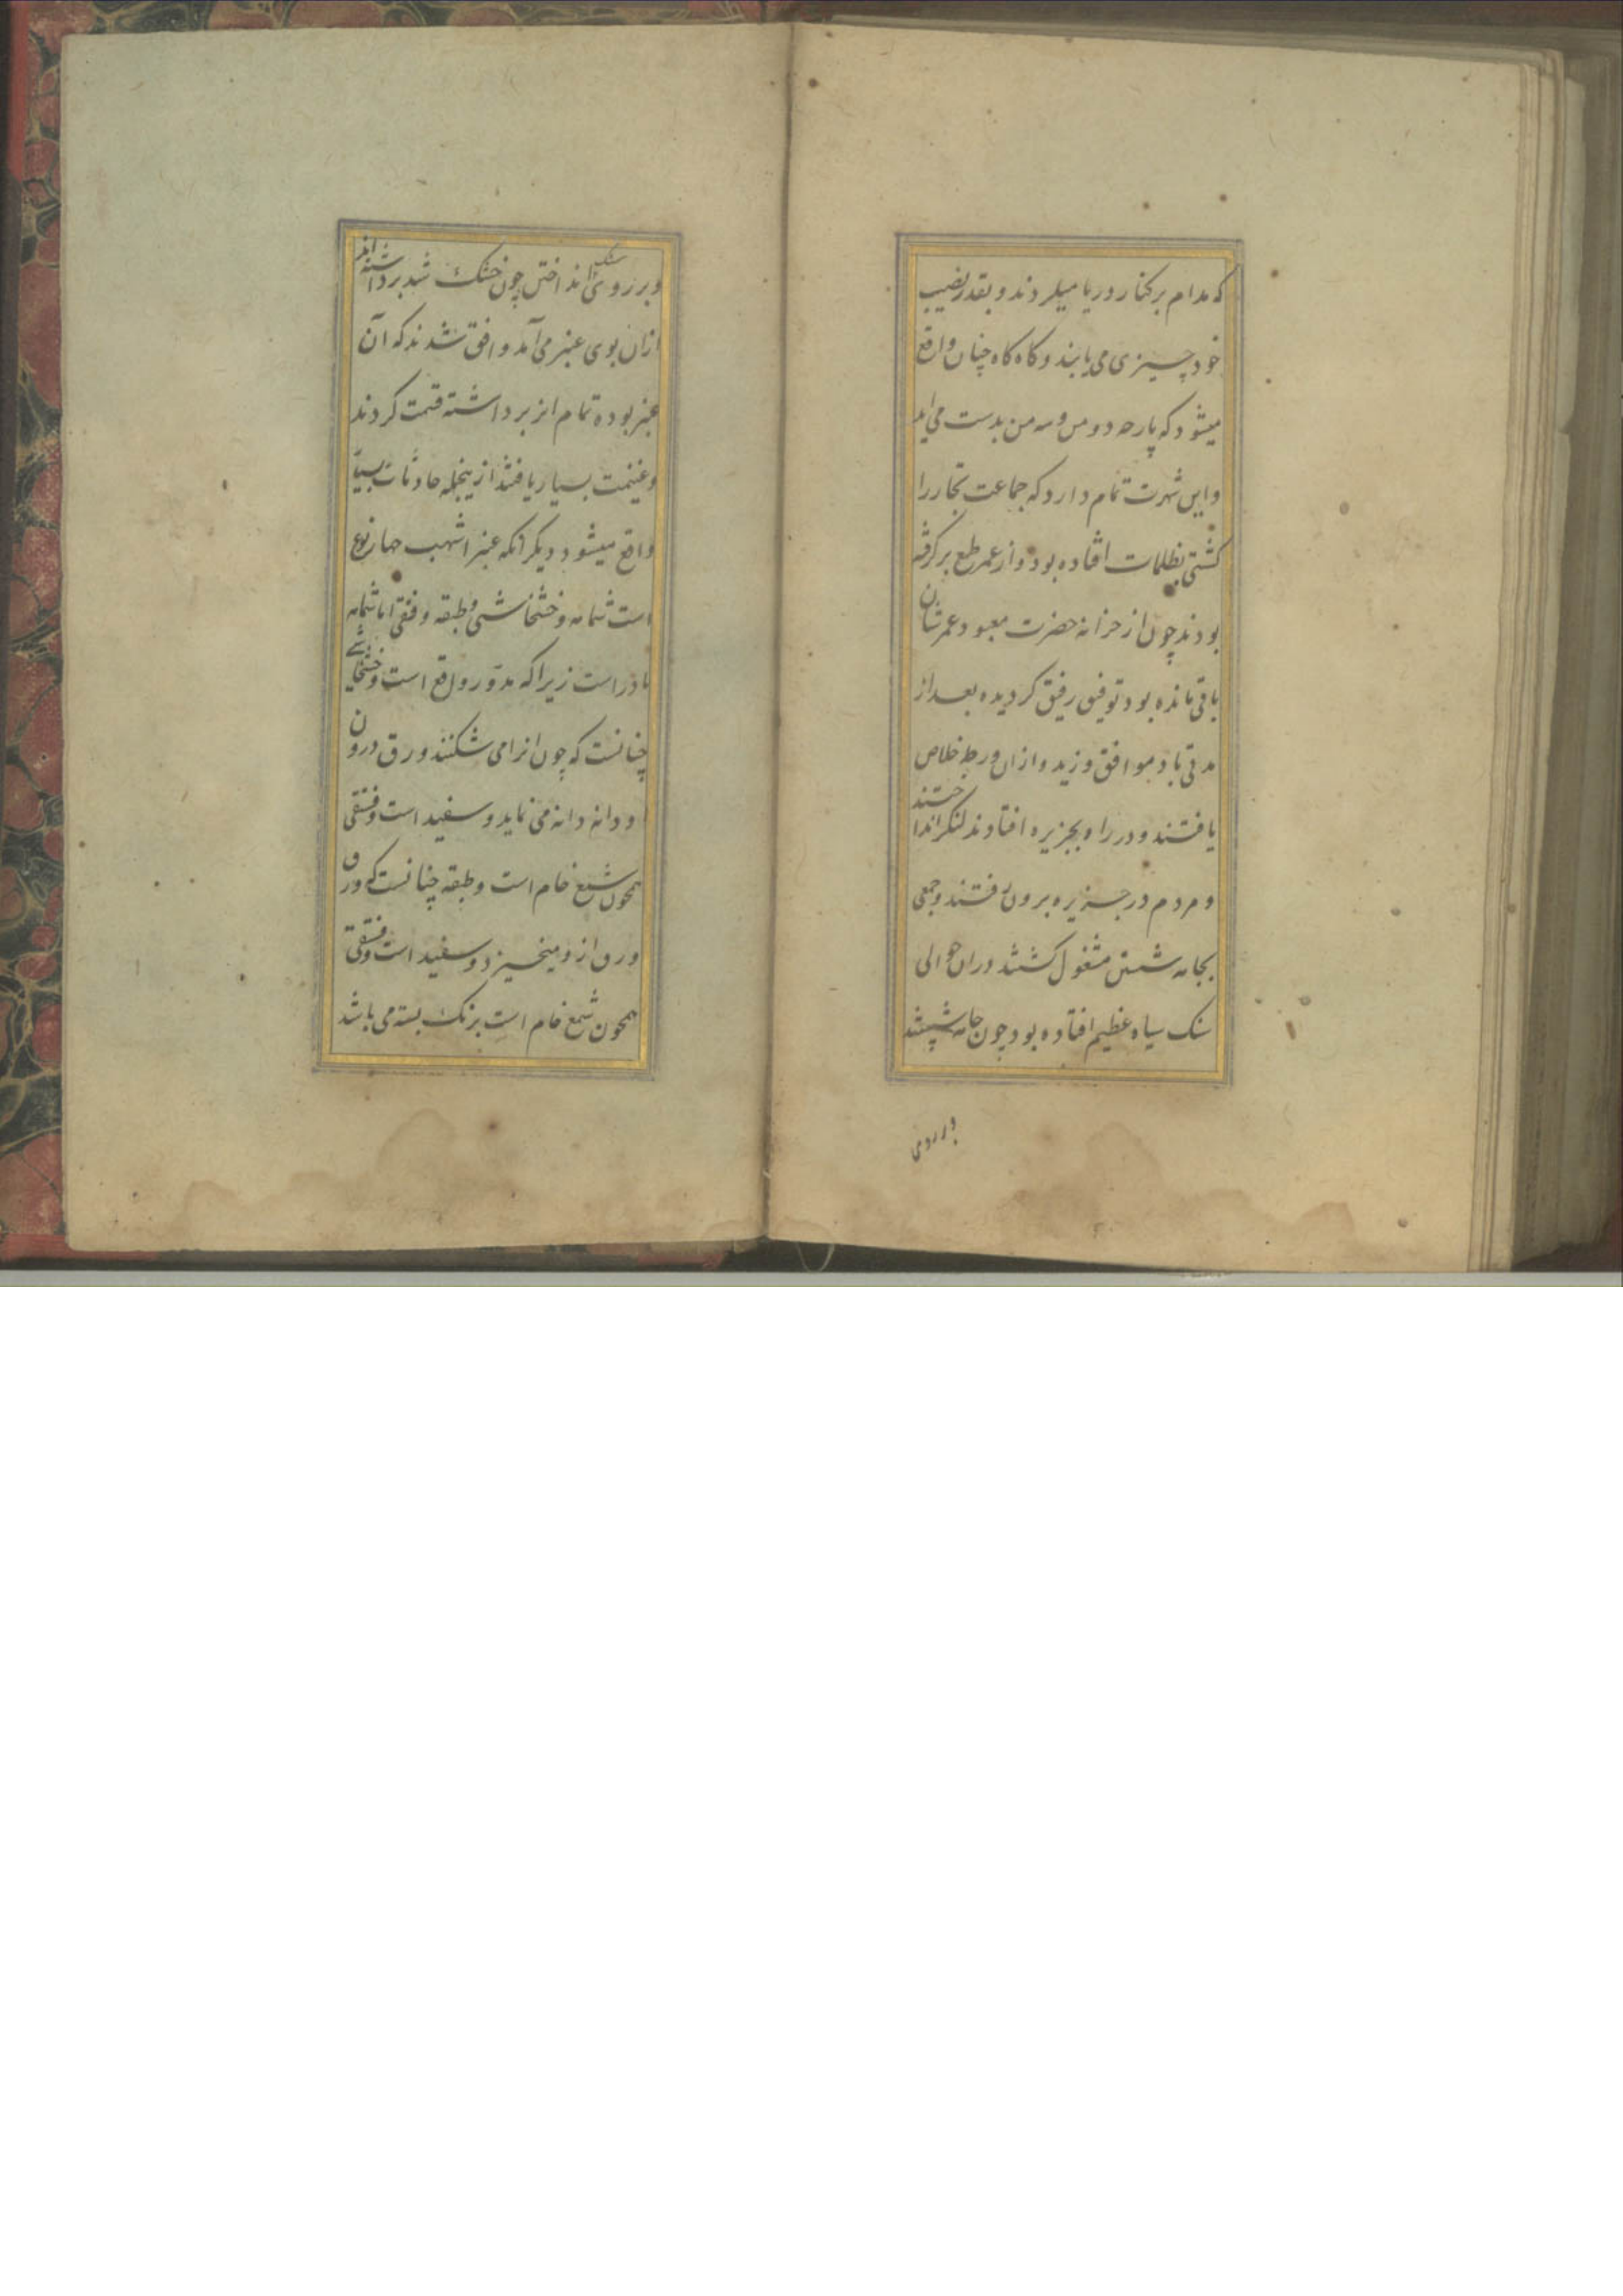 که مدام بر کنار دریا میکردند و بقدر نصیب
خود چیزی می یابند و کاه کاه چنان واقع
میشود که پارچه دو من و سه من بدست می اید
و این شهرت تمام دارد که جماعت تجار را
کشتی بظلمات افتاده بود و از عمر طمع بر کرفته
بودند چون از خزانه حضرت معبود عمرشان
باقی مانده بود توفیق رفیق کردیده بعد از
مدتی باد موافق وزید و ازان ورطه خلاص
یافتند و در راه بجزیره افتادند لنکر انداختند
و مردم در جزیره برون رفتند و جمعی
بجامه شستن مشغول کشتند دران حوالی
سنک سیاه عظیم افتاده بود چون جامه شستند
و بر روی
و بر روی سنک انداختن چون خشک شد برداشته اند
ازان بوی عنبر می آمد واقف شدند که آن
عنبر بوده تمام انرا برداشته قسمت کردند
و غنیمت بسیار یافتند ازینجمله حادثات بسیا
واقع میشود دیکر انکه عنبر اشهب چهار نوع
است شمامه و خشخاشی و طبقه و فستقی اما شمامه
نادر است زیرا که مدور واقع است و خشخاشی
چنانست که چون انرا می شکنند ورق درون
او دانه دانه می نماید و سفید است و فستقی
همچون شمع خام است و طبقه چنانست که ورق
ورق ازو میخیزد و سفید است و فستقی
همچون شمع خام است برنک بسته می باشد